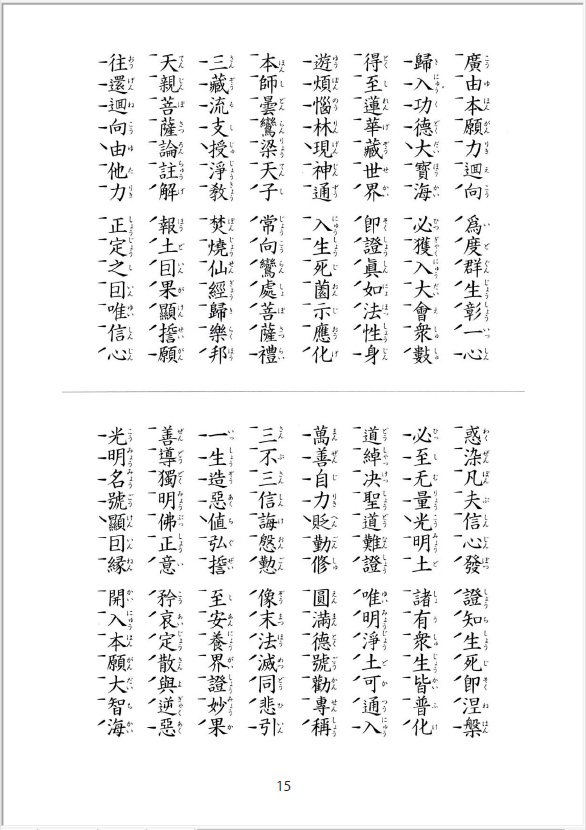 廣由本願力迴向　爲度群生彰一心
歸入功德大寶海　必獲入大會衆數
得至蓮華藏世界　卽證眞如法性身
遊煩惱林現神通　入生死薗示應化
本師曇鸞梁天子　常向鸞處菩薩禮
三藏流支授淨敎　焚燒仙經歸樂邦
天親菩薩論註解　報土囙果顯誓願
往還迴向由他力　正定之囙唯信心
惑染凡夫信心發　證知生死卽涅槃
必至无量光明土　諸有衆生皆普化
道綽决聖道難證　唯明淨土可通入
萬善自力貶勤修　圓滿德號勸專稱
三不三信誨慇懃　像末法滅同悲引
一生造惡値弘誓　至安養界證妙果
善導獨明佛正意　矜哀定散與逆惡
光明名號顯囙縁　開入本願大智海
15